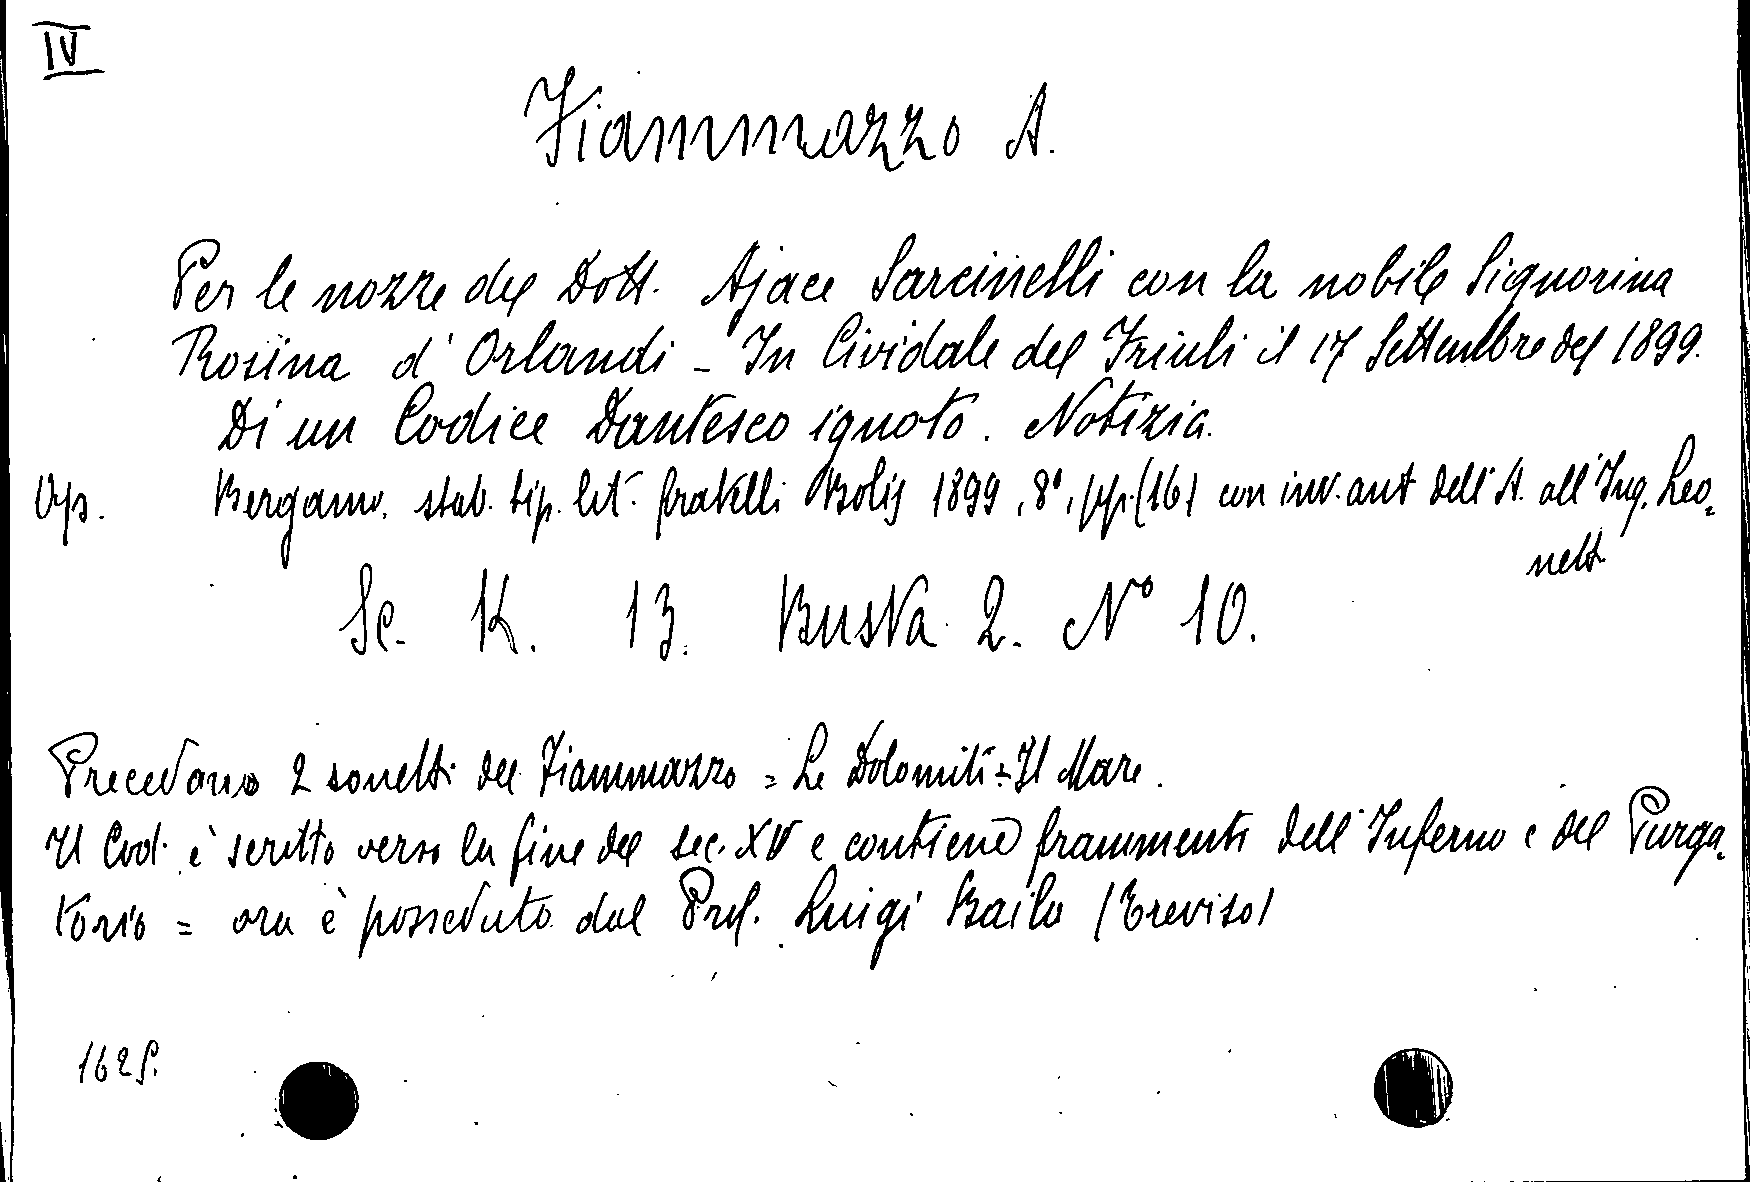 IV
Fiammazzo A.
Per le nozze del Dott. Ajace Sarcinelli con la nobile Signorina
Rosina d'Orlandi - In Cividale del Friuli il 17 Settembre del 1899.
Di un Codice Dantesco ignoto. Notizia.
Op. Bergamo. stab. tip. lit. fratelli Bolis 1899, 8°, pp. (16) con inv. aut dell'A. all'Ing. Leo=
nelli
Sc. K. 13. Busta 2. N° 10.
Precedono 2 sonetti del Fiammazzo = Le Dolomiti = Il Mare.
Il Cod. è scritto verso la fine del sec. XIV e contiene frammenti dell'Inferno e del Purga=
torio = ora è posseduto dal Prof. Luigi Bailo (Treviso)